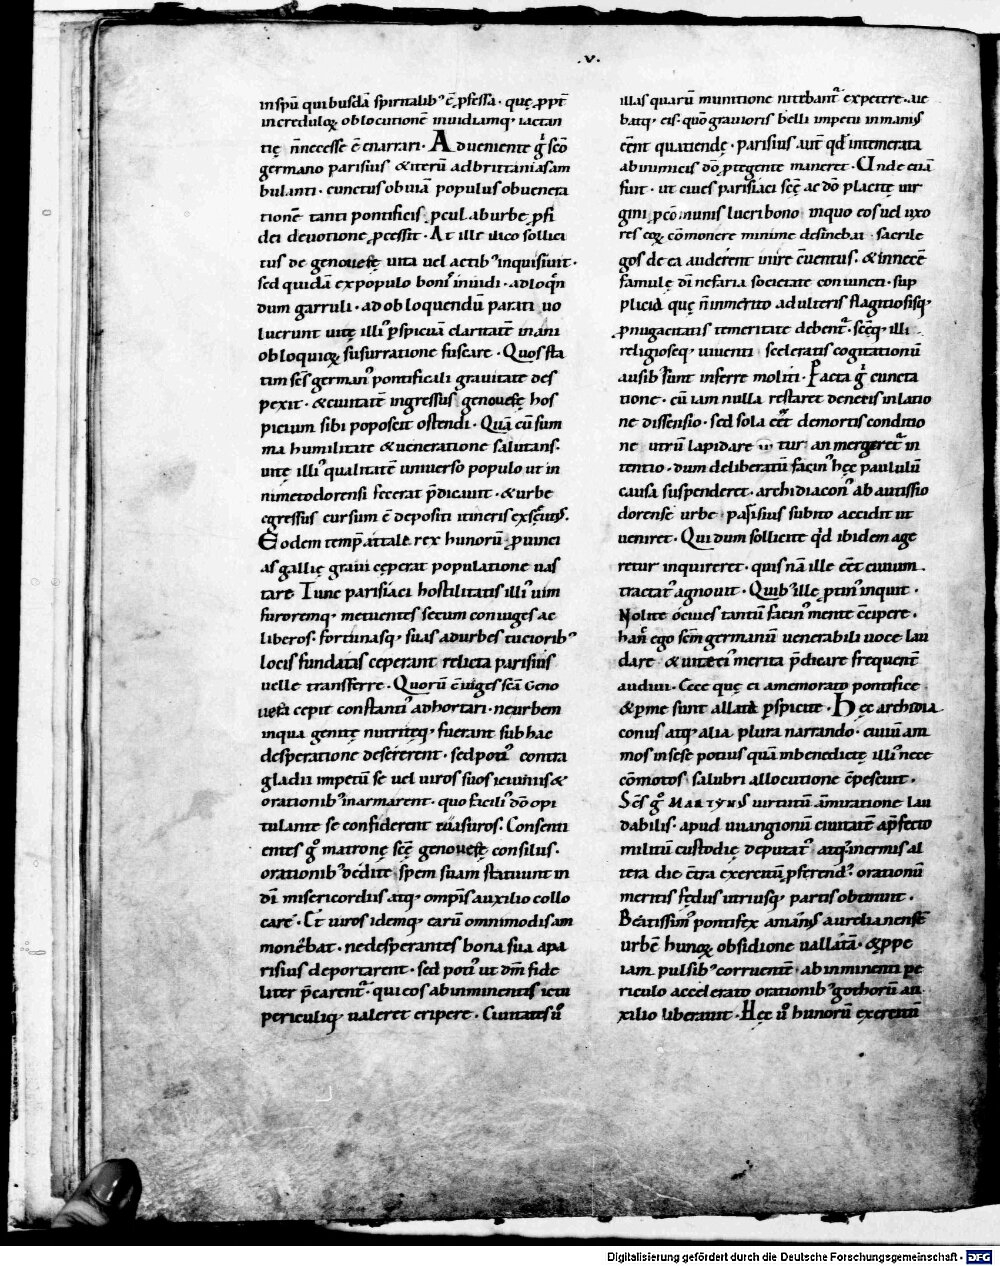 .v.
inspũ quibusdã spiritalib᾽ ẽ ꝓfessa · quę ꝓpt̃
increduloꝝ oblocutionẽ inuidiamq; iactan
tię ñnecesse ẽ enarrari · Adueniente g̃ sc̃o
germano parisius & iterũ adbrittanias am
bulanti · cunctus obuiã populus obuenera
tionẽ tanti pontificis ꝓcul aburbe ꝓfi
dei deuotione ꝓcessit · At ille ilico sollici
tus de genouefę uita uel actib᾽ inquisiuit ·
sed quidã expopulo boni᾽ inuidi · adloq̃n
dum garruli · ad obloquendũ parati uo
luerunt uitę illi᾽ ꝑspicuã claritatẽ inani
obloquioꝝ susurratione fuscare · Quos sta
tim sc̃s german᾽ pontificali grauitate des
pexit · & ciuitatẽ ingressus genouefę hos
picium sibi poposcit ostendi · Quã cũ sum
ma humilitate & ueneratione salutans ·
uitę illi᾽ qualitatẽ uniuerso populo ut in
nimetodorensi fecerat p̃dicauit · & urbe
egressus cursum ẽ depositi itineris exsecut᾽.
Eodem temp̃ attale rex hunorũ ꝓuinci
as gallię graui cęperat populatione uas
tare Tunc parisiaci hostilitatis illi᾽ uim
furoremq; metuentes secum coniuges ac
liberos · fortunasq; suas adurbes tucioríb᾽
locis fundatas ceperant relicta parisius
uelle transferre · Quorũ c̃iuges sc̃a Geno
uefa cepit constanti᾽ adhortari · neurbem
inqua genitę nutritęq; fuerant sub hac
desperatione desererent · sed poti᾽ contra
gladii impetũ se uel uiros suos ieiuniis &
orationib᾽ inarmarent · quo facili᾽ dõ opi
tulante se confiderent euasuros. Consenti
entes g᾽ matronę sc̃ę genouefę consiliis ·
orationib᾽ dedite spem suam statuunt in
dĩ misericordiis atq; omp̃is auxilio collo
care · Cẽt uiros idemq; earũ omnimodis am
monebat · nedesperantes bona sua apa
risius deportarent · sed poti᾽ ut dm̃ fide
liter p̃carent᾽ · qui eos abinminentis ictu
periculiq; ualeret eripere · Ciuitates ũ
illas quarũ munitione nitebant᾽ expetere · ue
batq; eis · quõ grauioris belli impetu inmanis
eẽnt quatiendę · parisius aut̃ qd̃ intemerata
abinimicis dõ ꝓtegente maneret · Unde etiã
fiunt · ut ciues parisiaci sc̃ę ac dõ placitę uir
gini ꝓ cõmunis lucri bono inquo eos uel uxo
res eoꝝ cõmonere minime desinebat · sacrile
gos de ea auderent inire c̃uentus · & innocẽ
famulę dĩ nefaria societate coniuncti · sup
plicia quę ñ inmerito adulteris flagitiosisq;
ꝓ nugacitatis temeritate debent᾽ · sc̃ęq; illi
religioseq; uiuenti sceleratis cogitationũ
ausib᾽ sunt inferre moliti · Facta g᾽ cuncta
tione · cũ iam nulla restaret deneeis inlatio
ne dissensio · sed sola eẽt demortis conditio
ne utrũ lapidare tur an mergeret᾽ in
tentio · dum deliberatũ facin᾽ hęc paululũ
causa suspenderet · archidiacon᾽ ab autissio
dorense urbe parisius subito accidit ut
ueniret · Qui dum sollicite qd̃ ibidem age
retur inquireret · quis nã ille eẽt ciuium
tractat᾽ agnouit · Quib᾽ ille ꝓtin᾽ inquit ·
Nolite ó ciues tantũ facin᾽ mente c̃cipere ·
hanc̃ ego sc̃m germanũ uenerabili uoce lau
dare · & uitę ei᾽ merita p̃dicare frequent̃
audiui · Ecce quę ei amemorato pontifice
& ꝑ me sunt allata ꝑspicite · hęc archidia
conus atq; alia plura narrando · ciuiũ am
mos insese potius quã inbenedictę illi᾽ nece
cõmotos · salubri allocutione c̃pescuit ·
Sc̃s g᾽ MARTYNS uirtutũ ãmiratione lau
dabilis · apud uuangionũ ciuitatẽ ap̃fecto
militiũ custodię deputat᾽ atq; inermis al
tera die c̃tra exercitũ ꝓferend᾽ · orationũ
meritis fędus utriusq; partis obtinuit ·
Beatissim᾽ pontifex anian᾽ aurelianensẽ
urbẽ hunoꝝ obsidione uallatã · & ꝓpe
iam pulsib᾽ corruentẽ · abinminenti pe
riculo accelerato orationib᾽ gothorũ au
xilio liberauit · Hęc ũ hunorũ exercitũ
Digitalisierung gefördert durch die Deutsche Forschungsgemeinschaft - DFG